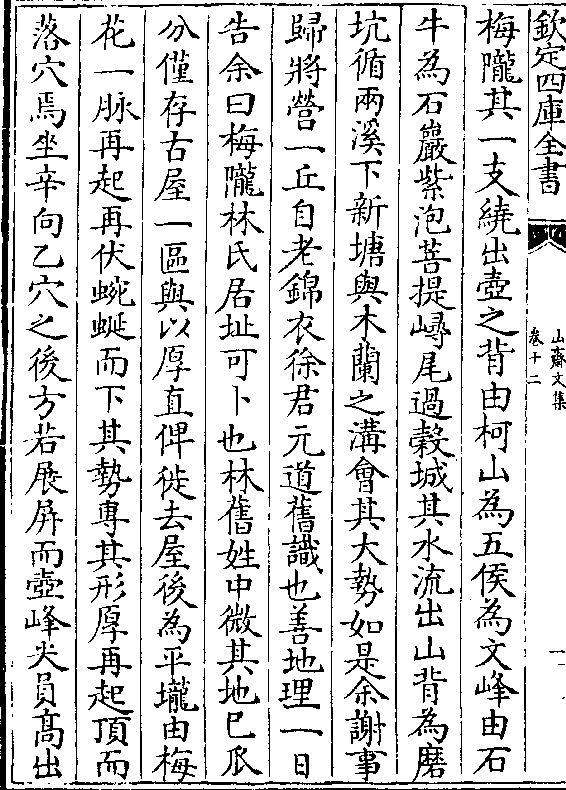 欽定四庫全書
山齋文集
卷十二
一
梅隴其一支繞出壺之背由柯山為五侯為文峰由石
牛為石巖紫泡菩提崿尾過穀城其水流出山背為磨
坑循兩溪下新塘與木蘭之溝會其大勢如是余謝事
歸將營一丘自老錦衣徐君元道舊識也善地理一日
告余曰梅隴林氏居址可卜也林舊姓中微其地已瓜
分僅存古屋一區與以厚直俾徙去屋後為平壠由梅
花一脉再起再伏蜿蜒而下其勢專其形厚再起頂而
落穴焉坐辛向乙穴之後方若展屏而壺峰尖員高出